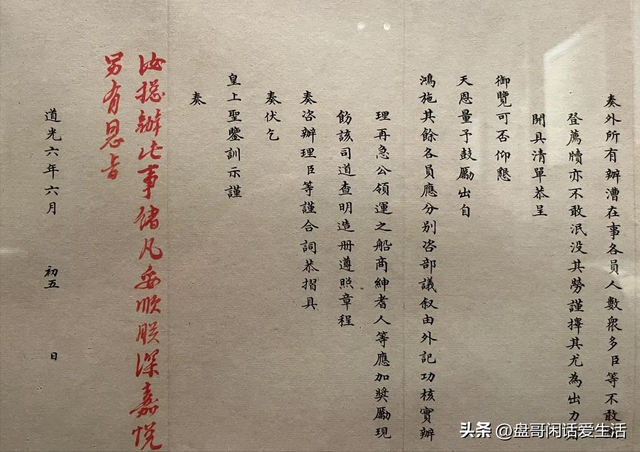 奏外所有辦漕在事各員人數眾多臣等不敢
登薦牘亦不敢泯没其勞謹擇其尤為出力
開具清單恭呈
御覽可否仰懇
天恩量予鼓勵出自
鴻施其餘各員應分别咨部議叙由外記功核實辦
理再急公領運之船商紳耆人等應加奬勵現
飭該司道查明造册遵照章程
奏咨辦理臣等謹合詞恭摺具
奏伏乞
皇上聖鑒訓示謹
奏
汝總辦此事諸凡妥順朕深嘉悅
另有恩旨
道光六年六月 初五 日
头条 @盘哥闲话爱生活